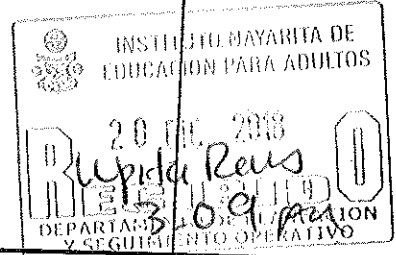 INSTITUTO NAYARITA DE
EDUCACIÓN PARA ADULTOS
20 DIC. 2018
RECIBIDO
3:09 pm
DEPARTAMENTO DE PLANEACION
Y SEGUIMIENTO OPERATIVO